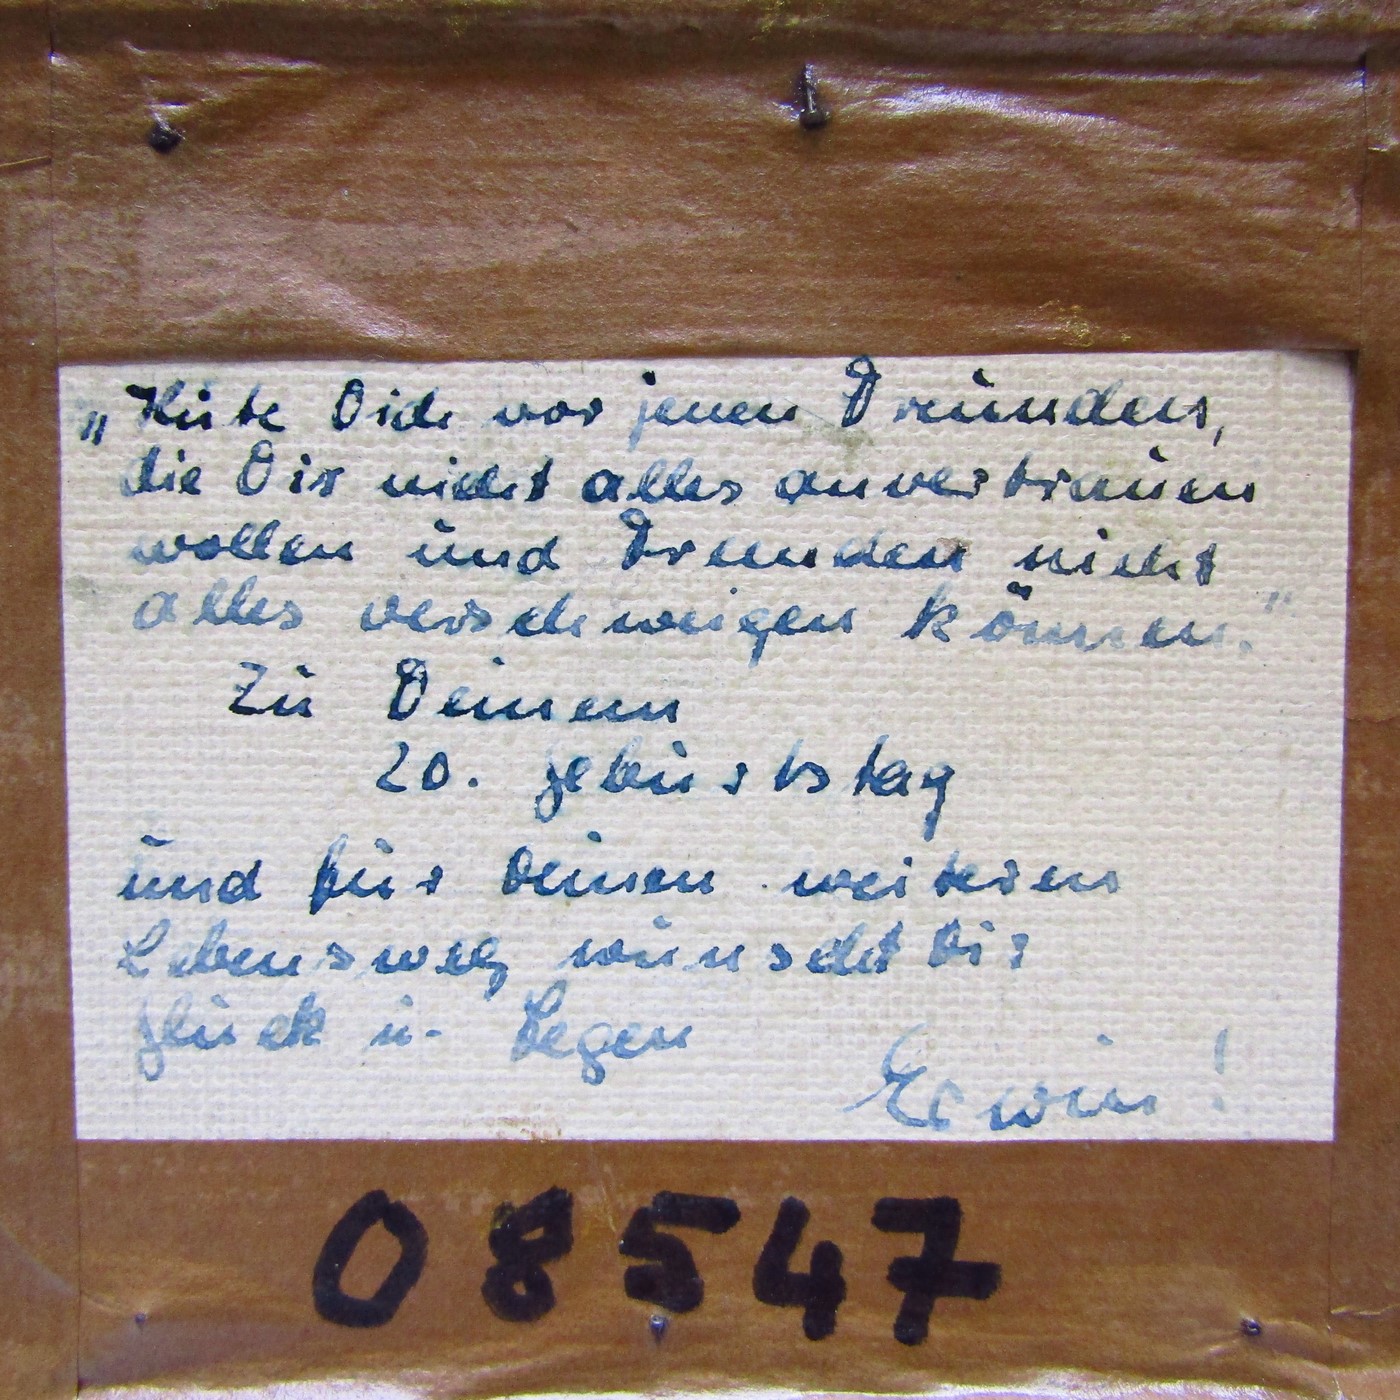 „Hüte Dich vor jenen Freunden,
die Dir nicht alles anvertrauen
wollen und Fremden nicht
alles verschweigen können."
Zu Deinem
20. Geburtstag
und für Deinen weiteren
Lebensweg wünscht Dir
Glück u. Segen
Erwin!
08547